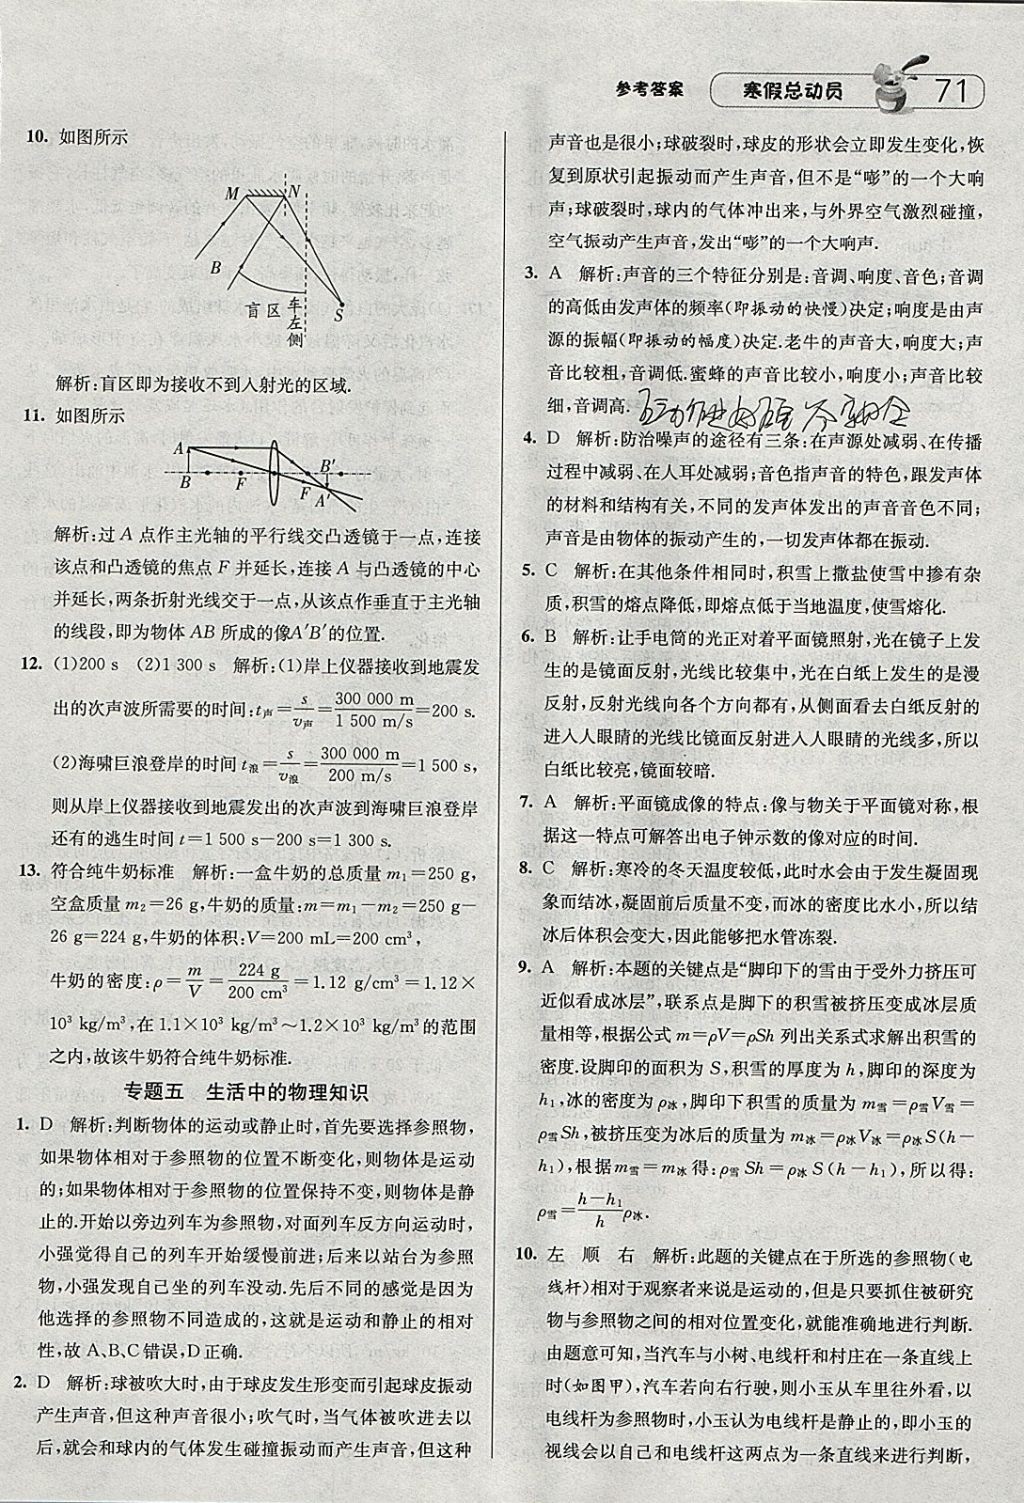 参考答案 寒假总动员 71
10. 如图所示
M N
B
盲区
车左侧
S
解析:盲区即为接收不到入射光的区域.
11. 如图所示
A B F F B′ A′
解析:过 A 点作主光轴的平行线交凸透镜于一点,连接
该点和凸透镜的焦点 F 并延长,连接 A 与凸透镜的中心
并延长,两条折射光线交于一点,从该点作垂直于主光轴
的线段,即为物体 AB 所成的像A′B′的位置.
12. (1)200 s (2)1 300 s 解析:(1)岸上仪器接收到地震发
出的次声波所需要的时间:t声=s/v声=300 000 m/1 500 m/s=200 s.
(2)海啸巨浪登岸的时间t浪=s/v浪=300 000 m/200 m/s=1 500 s,
则从岸上仪器接收到地震发出的次声波到海啸巨浪登岸
还有的逃生时间 t=1 500 s-200 s=1 300 s.
13. 符合纯牛奶标准 解析:一盒牛奶的总质量 m₁=250 g,
空盒质量 m₂=26 g,牛奶的质量:m=m₁-m₂=250 g-
26 g=224 g,牛奶的体积:V=200 mL=200 cm³,
牛奶的密度:ρ=m/V=224 g/200 cm³=1.12 g/cm³=1.12×
10³ kg/m³,在 1.1×10³ kg/m³～1.2×10³ kg/m³的范围
之内,故该牛奶符合纯牛奶标准.
专题五 生活中的物理知识
1. D 解析:判断物体的运动或静止时,首先要选择参照物,
如果物体相对于参照物的位置不断变化,则物体是运动
的;如果物体相对于参照物的位置保持不变,则物体是静
止的.开始以旁边列车为参照物,对面列车反方向运动时,
小强觉得自己的列车开始缓慢前进;后来以站台为参照
物,小强发现自己坐的列车没动.先后不同的感觉是因为
他选择的参照物不同造成的,这就是运动和静止的相对
性,故 A、B、C错误,D正确.
2. D 解析:球被吹大时,由于球皮发生形变而引起球皮振动
产生声音,但这种声音很小;吹气时,当气体被吹进去以
后,就会和球内的气体发生碰撞振动而产生声音,但这种
声音也是很小;球破裂时,球皮的形状会立即发生变化,恢
复到原状引起振动而产生声音,但不是“嘭”的一个大响
声;球破裂时,球内的气体冲出来,与外界空气激烈碰撞,
空气振动产生声音,发出“嘭”的一个大响声.
3. A 解析:声音的三个特征分别是:音调、响度、音色;音调
的高低由发声体的频率(即振动的快慢)决定;响度是由声
源的振幅(即振动的幅度)决定.老牛的声音大,响度大;声
音比较粗,音调低.蜜蜂的声音比较小,响度小;声音比较
细,音调高.
4. D 解析:防治噪声的途径有三条:在声源处减弱、在传播
过程中减弱、在人耳处减弱;音色指声音的特色,跟发声体
的材料和结构有关,不同的发声体发出的声音音色不同;
声音是由物体的振动产生的,一切发声体都在振动.
5. C 解析:在其他条件相同时,积雪上撒盐使雪中掺有杂
质,积雪的熔点降低,即熔点低于当地温度,使雪熔化.
6. B 解析:让手电筒的光正对着平面镜照射,光在镜子上发
生的是镜面反射,光线比较集中,光在白纸上发生的是漫
反射,反射光线向各个方向都有,从侧面看去白纸反射的
进入人眼睛的光线比镜面反射进入人眼睛的光线多,所以
白纸比较亮,镜面较暗.
7. A 解析:平面镜成像的特点:像与物关于平面镜对称,根
据这一特点可解答出电子钟示数的像对应的时间.
8. C 解析:寒冷的冬天温度较低,此时水会由于发生凝固现
象而结冰,凝固前后质量不变,而冰的密度比水小,所以结
冰后体积会变大,因此能够把水管冻裂.
9. A 解析:本题的关键点是“脚印下的雪由于受外力挤压可
近似看成冰层”,联系点是脚下的积雪被挤压变成冰层质
量相等,根据公式 m=ρV=ρSh 列出关系式求解出积雪的
密度.设脚印的面积为 S,积雪的厚度为 h,脚印的深度为
h₁,冰的密度为 ρ冰,脚印下积雪的质量为 m雪=ρ雪V雪=
ρ雪Sh,被挤压变为冰后的质量为 m冰=ρ冰V冰=ρ冰S(h-
h₁),根据 m雪=m冰得:ρ雪Sh=ρ冰S(h-h₁),所以得:
ρ雪=h-h₁/h ρ冰.
10. 左 顺 右 解析:此题的关键点在于所选的参照物(电
线杆)相对于观察者来说是运动的,但是只要抓住被研究
物与参照物之间的相对位置变化,就能准确地进行判断.
由题意可知,当汽车与小树、电线杆和村庄在一条直线上
时(如图甲),汽车若向右行驶,则小玉从车里往外看,以
电线杆为参照物时,小玉认为电线杆是静止的,即小玉的
视线会以自己和电线杆这两点为一条直线来进行判断,